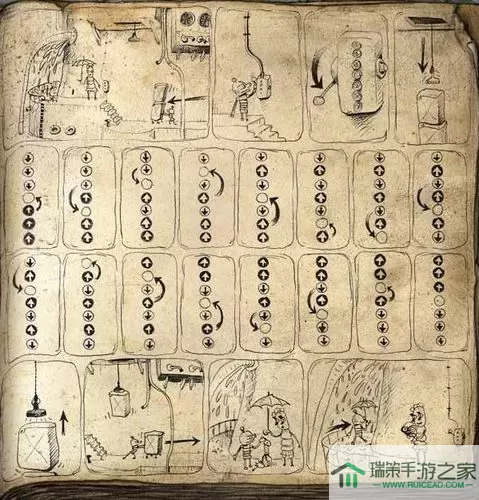 瑞策手游之家
WWW.RUICEAD.COM